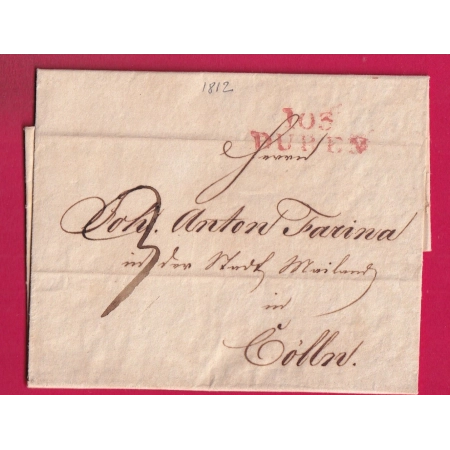 1812
103
DUREN
Herrn
Joh. Anton Farina
in der Stadt Mailand
in
Cölln.
3